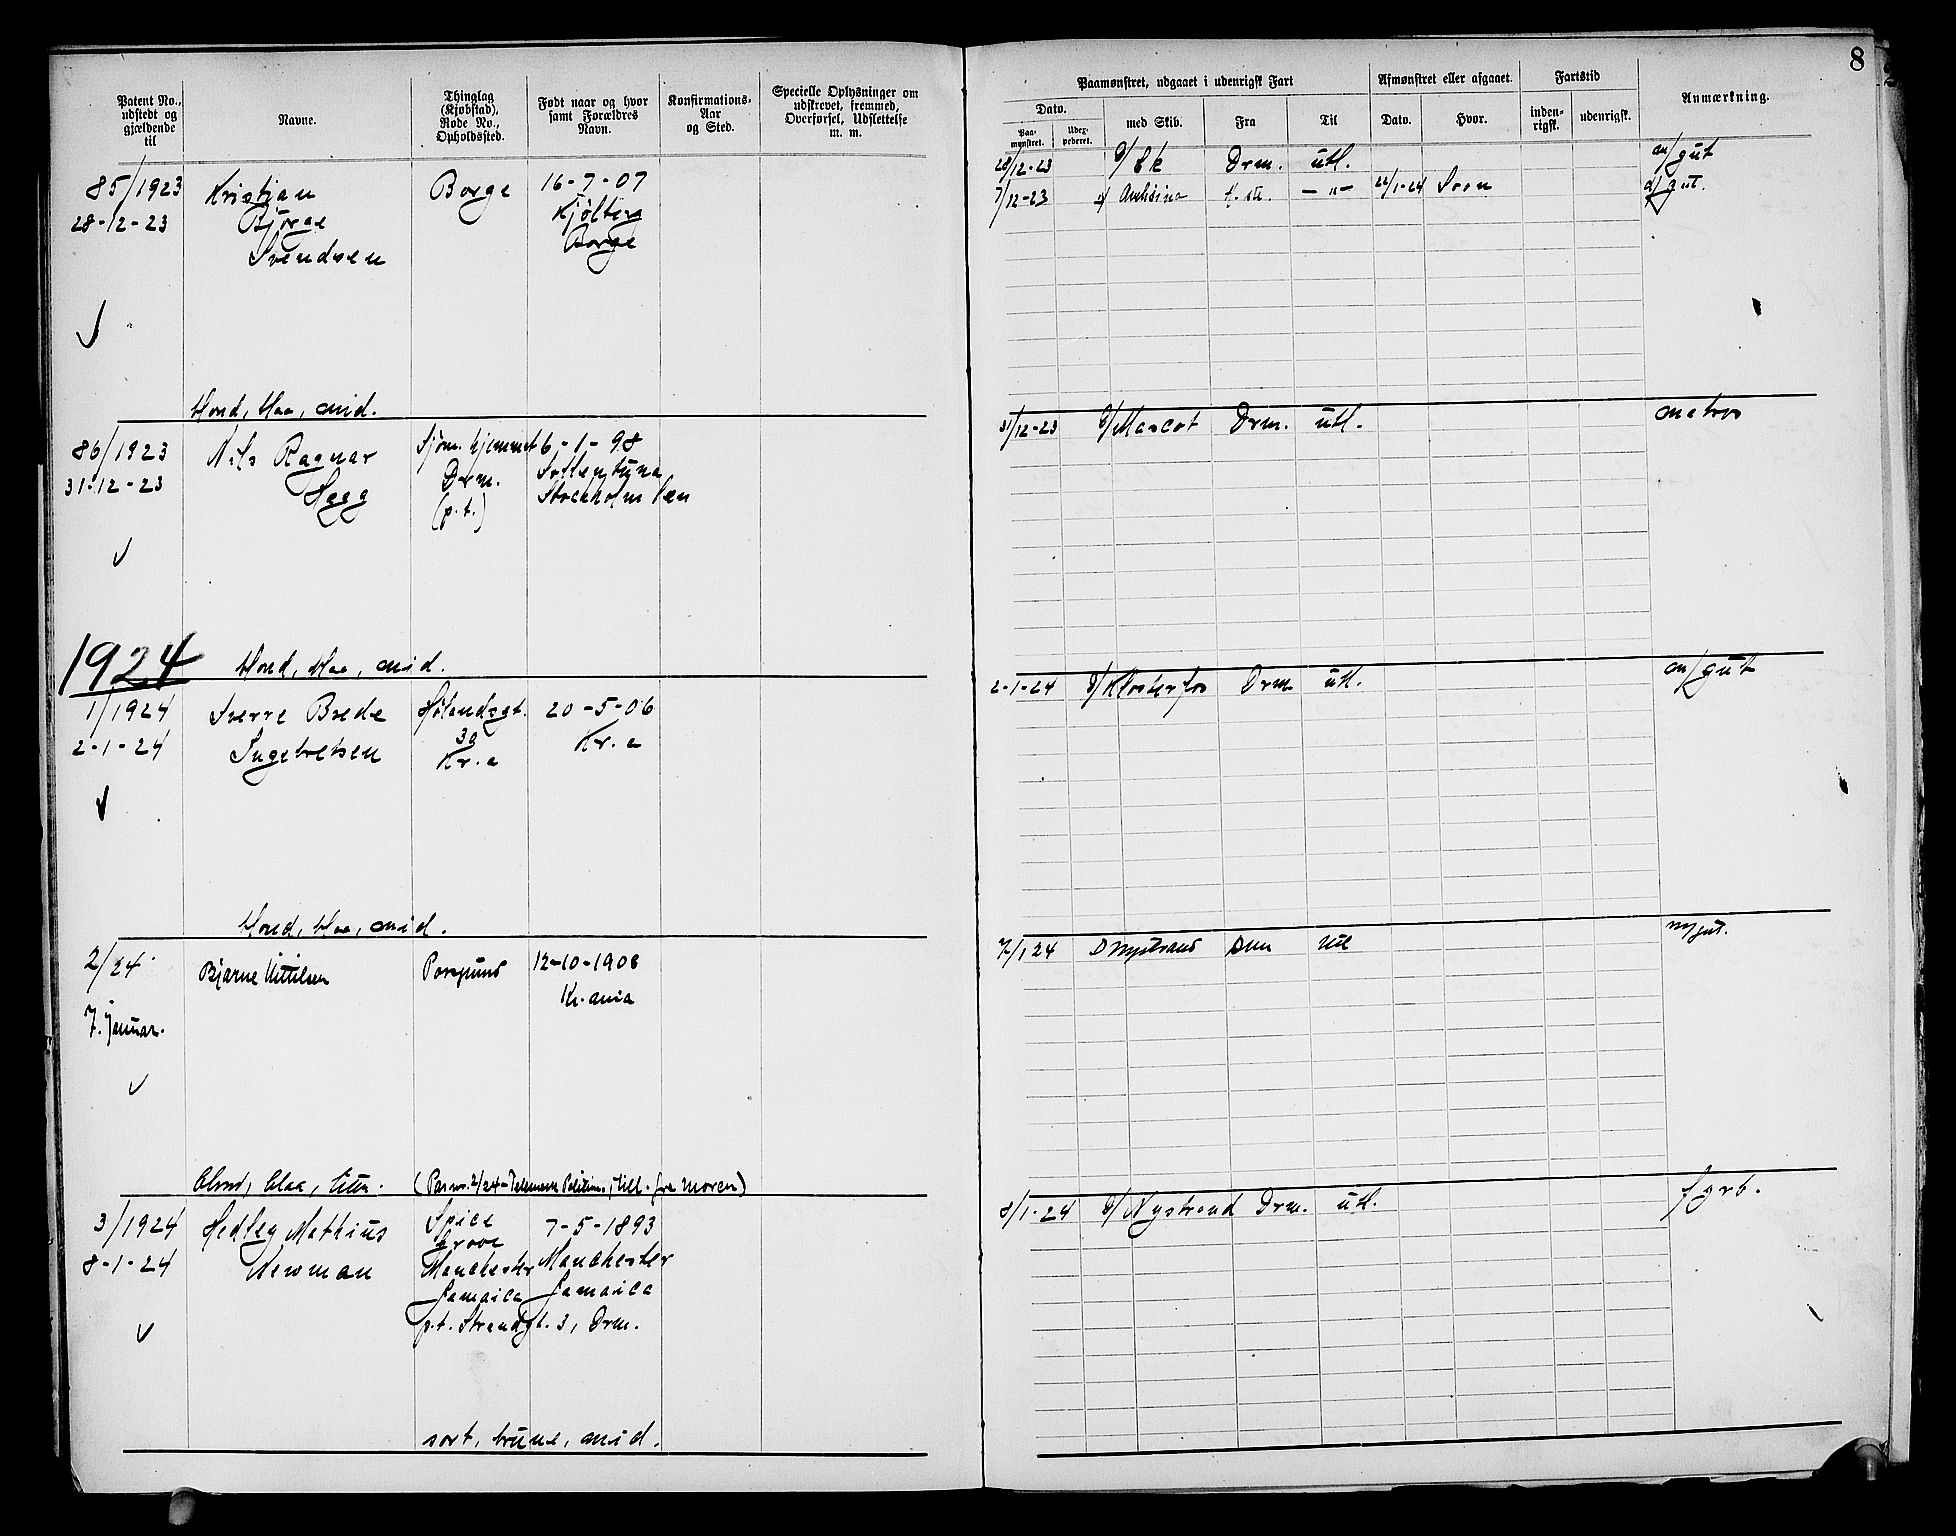 8
Patent No., udstedt og gjældende til
Navne.
Thinglag (Kjøbstad), Rode No., Opholdssted.
Født naar og hvor samt Forældres Navn.
Konfirmations-Aar og Sted.
Specielle Oplysninger om udskrevet, fremmed, Overførsel, Udslettelse m. m.
Paamønstret, udgaaet i udenrigsk Fart
Afmønstret eller afgaaet.
Fartstid
Anmærkning.
Dato.
med Skib.
Fra
Til
Dato.
Hvor.
inden-rigsk.
udenrigsk.
Paa-mønstret.
Udex-pederet.
85/1923
28-12-23
Kristian
Bjørge
Svendsen
Borge
16-7-07
Kjølberg
Borge
28/12-23 D/ Ek Drm. utl. m/gut
7/12-23 22/1-24 d/gut.
blond, blaa, mid.
86/1923
31-12-23
Nils Ragnar
Hägg
Sjøm. hjemmet
Drm.
(p.t.)
6-1-98
Sollentuna
Stockholm län
31/12-23 D/Mascot Drm. utl. matros
1924
blond, blaa, mid.
1/1924
2-1-24
Sverre Brede
Ingebretsen
Hølandsgt.
Kr.a
20-5-06
Kr.a
2-1-24 D/Klosterfos Drm. utl. m/gut
blond, blaa, mid.
2/24
7. januar.
Bjarne Kittilsen
Porsgrund
12-10-1908
Kr.ania
7/1 24 D Nystrand Drm utl
blond, blaa, liten. (Pas nr. 2/24 - Telemark Politim., till. fra moren)
3/1924
8-1-24
Hedley Mathius
Newman
Spice
Grove
Manchester
Jamaica
p.t. Strandgt. 3, Drm.
7-5-1893
Manchester
Jamaica
8/1-24 D/Nystrand Drm. utl. fyrb.
sort, brune, mid.